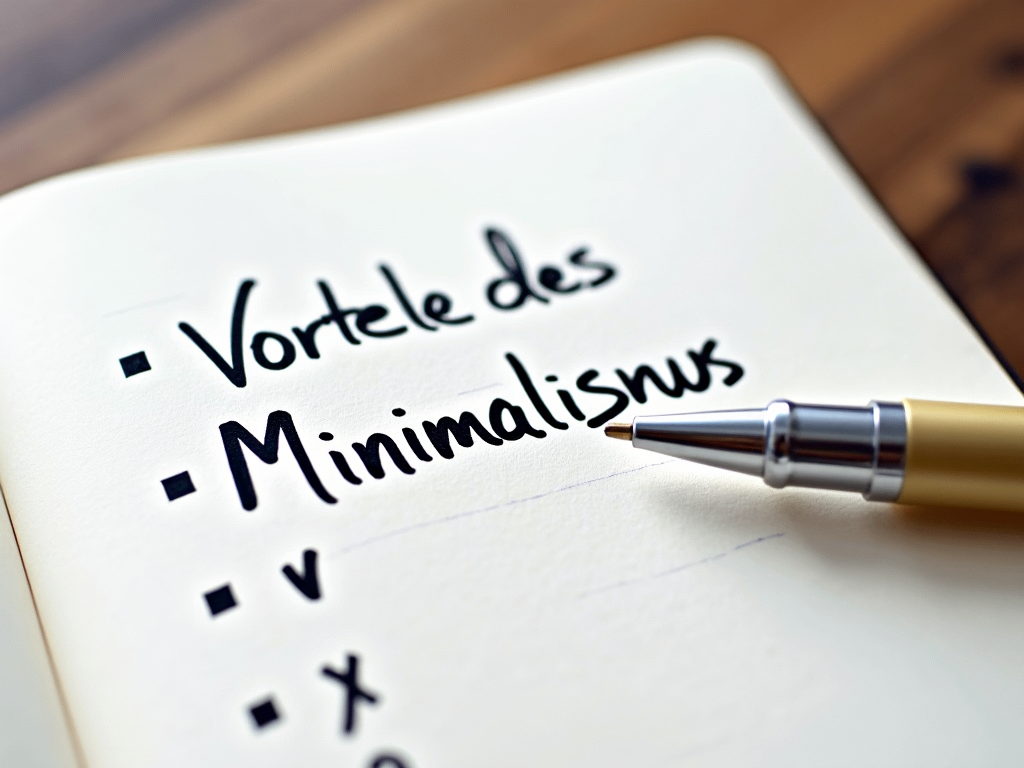 ▪ Vortele des
▪ Minimalisnus
▪ v
▪ x